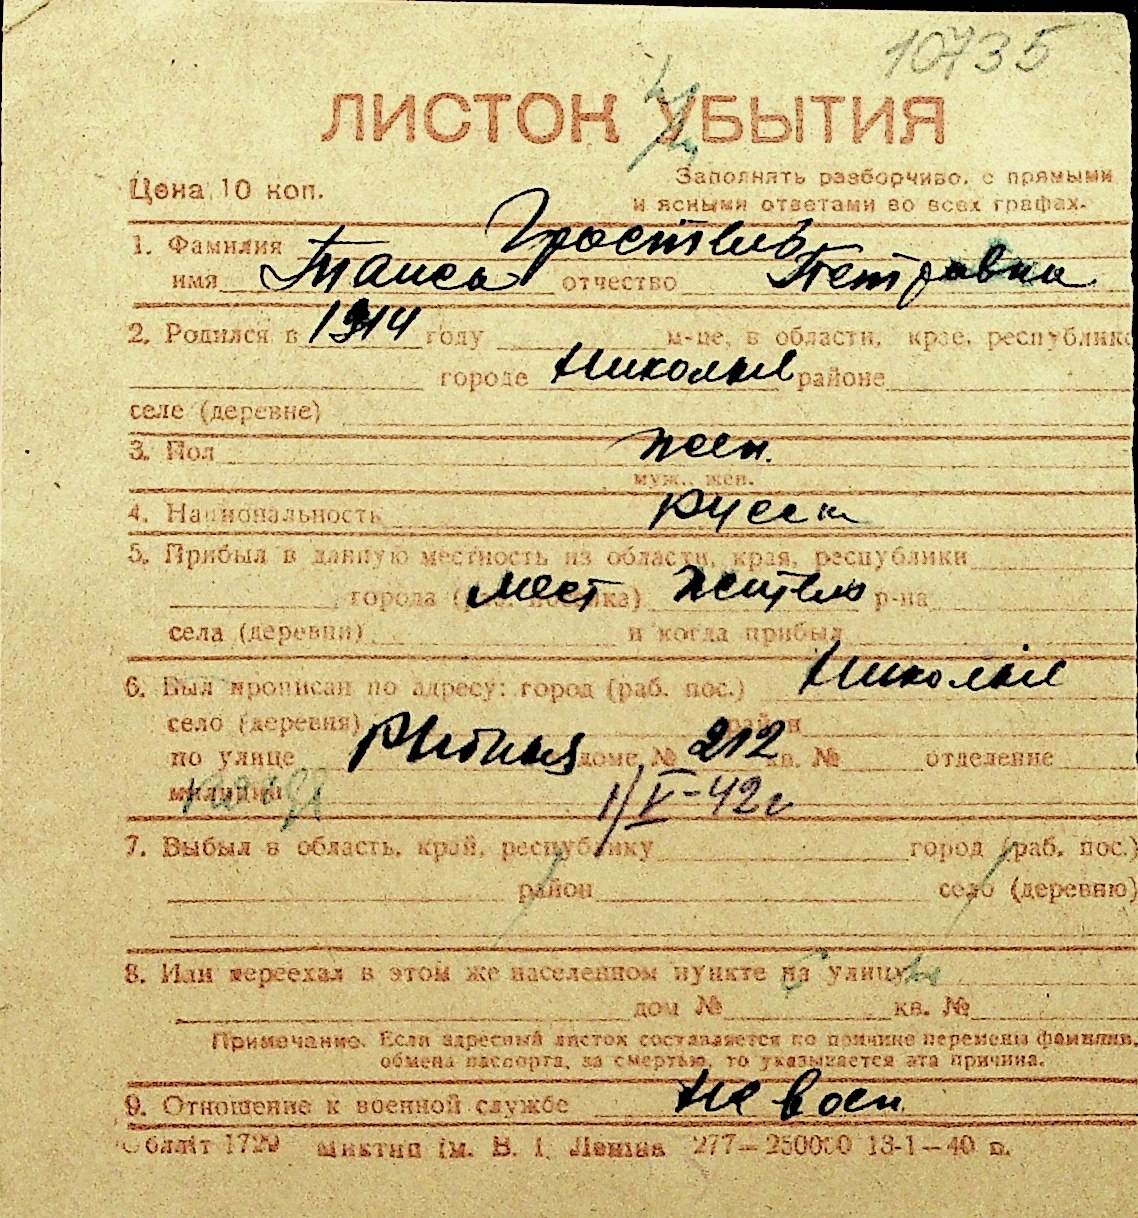 10735
ЛИСТОК УБЫТИЯ
Цена 10 коп.
Заполнять разборчиво, с прямыми
и ясными ответами во всех графах.
1. Фамилия
имя Таиса отчество Петровна
2. Родился в 1914 году м-це, в области, крае, республике
городе Николаев районе
селе (деревне)
3. Пол жен.
муж., жен.
4. Национальность русск
5. Прибыл в данную местность из области, края, республики
города (раб. поселка) мест житель р-на
села (деревни) и когда прибыл
6. Был прописан по адресу: город (раб. пос.) Николаев
село (деревня) район
по улице Рыбная доме № 212 кв. № отделение
милиции 1/V-42г
7. Выбыл в область, край, республику город (раб. пос.)
район село (деревню)
8. Или переехал в этом же населенном пункте на улицу
дом № кв. №
Примечание. Если адресный листок составляется по причине перемены фамилии,
обмена паспорта, за смертью, то указывается эта причина.
9. Отношение к военной службе не воен.
Обліт 1729 Миктип ім. В. І. Леніна 277—250000 13-1—40 р.